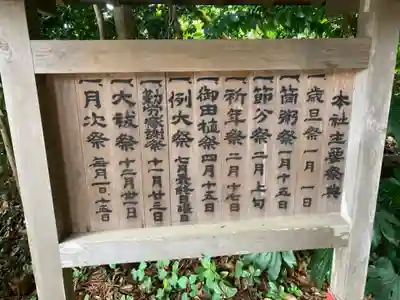 本社主要祭典
一歳旦祭 一月一日
一筒粥祭 一月十五日
一節分祭 二月上旬
一祈年祭 二月十七日
一御田植祭 四月十五日
一例大祭 七月最終日曜日
一勤労感謝祭 十一月廿三日
一大祓祭 十二月卅一日
一月次祭 毎月一日、十五日